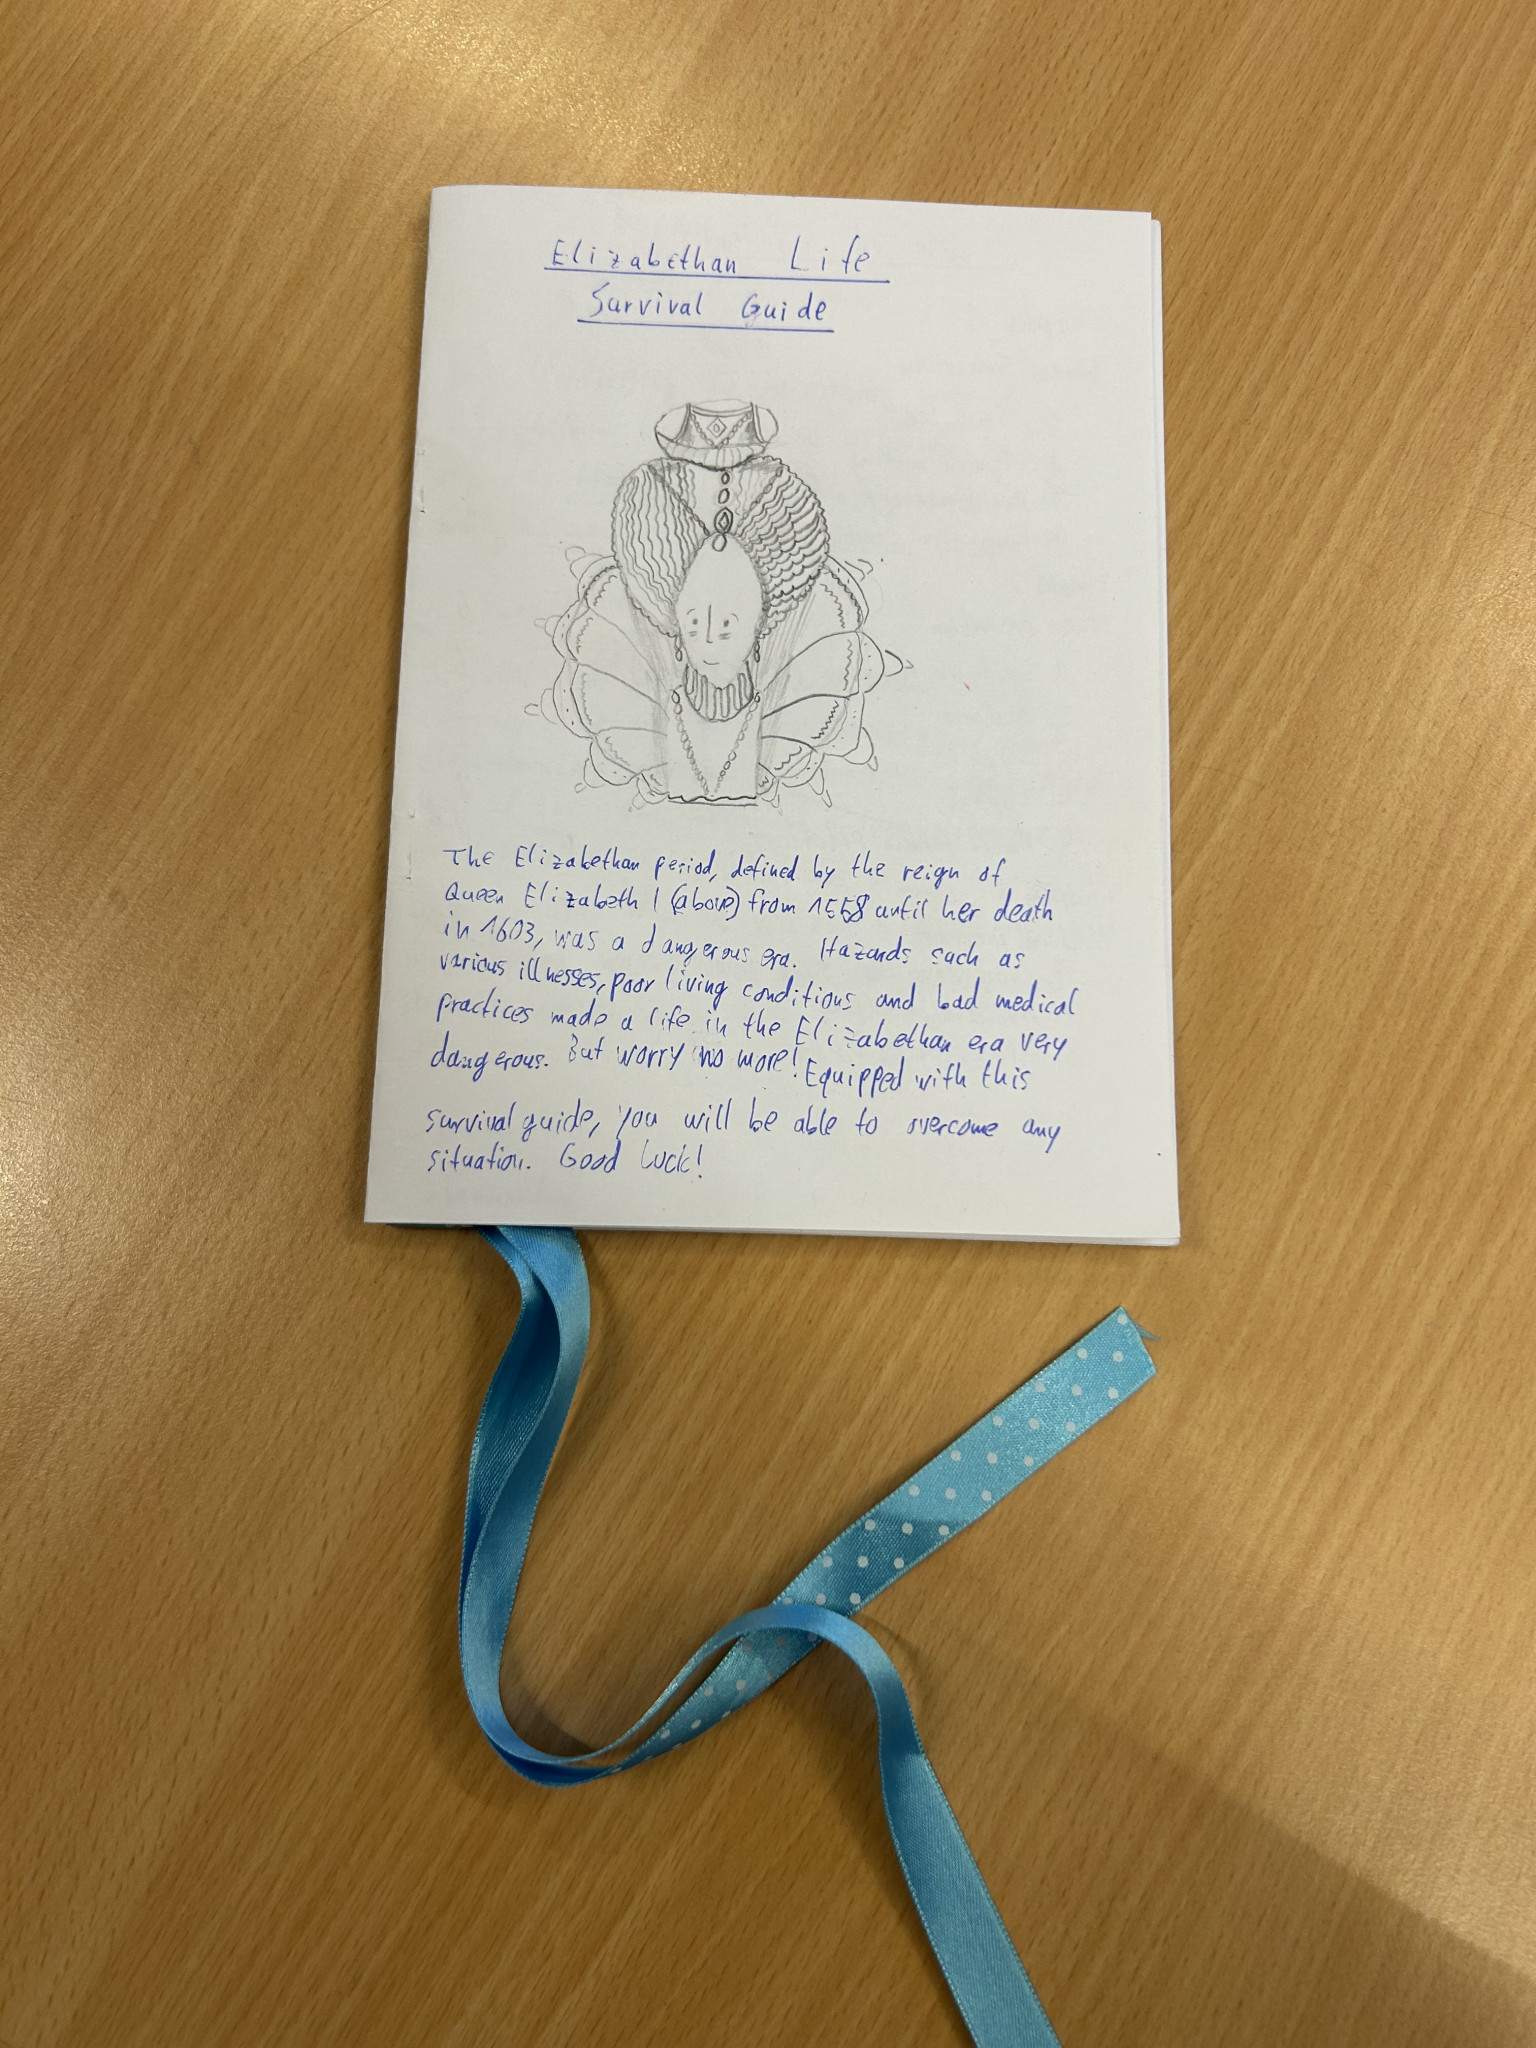 Elizabethan Life
Survival Guide
The Elizabethan period, defined by the reign of
Queen Elizabeth I (above) from 1558 until her death
in 1603, was a dangerous era. Hazards such as
various illnesses, poor living conditions and bad medical
practices made a life in the Elizabethan era very
dangerous. But worry no more! Equipped with this
survival guide, you will be able to overcome any
situation. Good Luck!